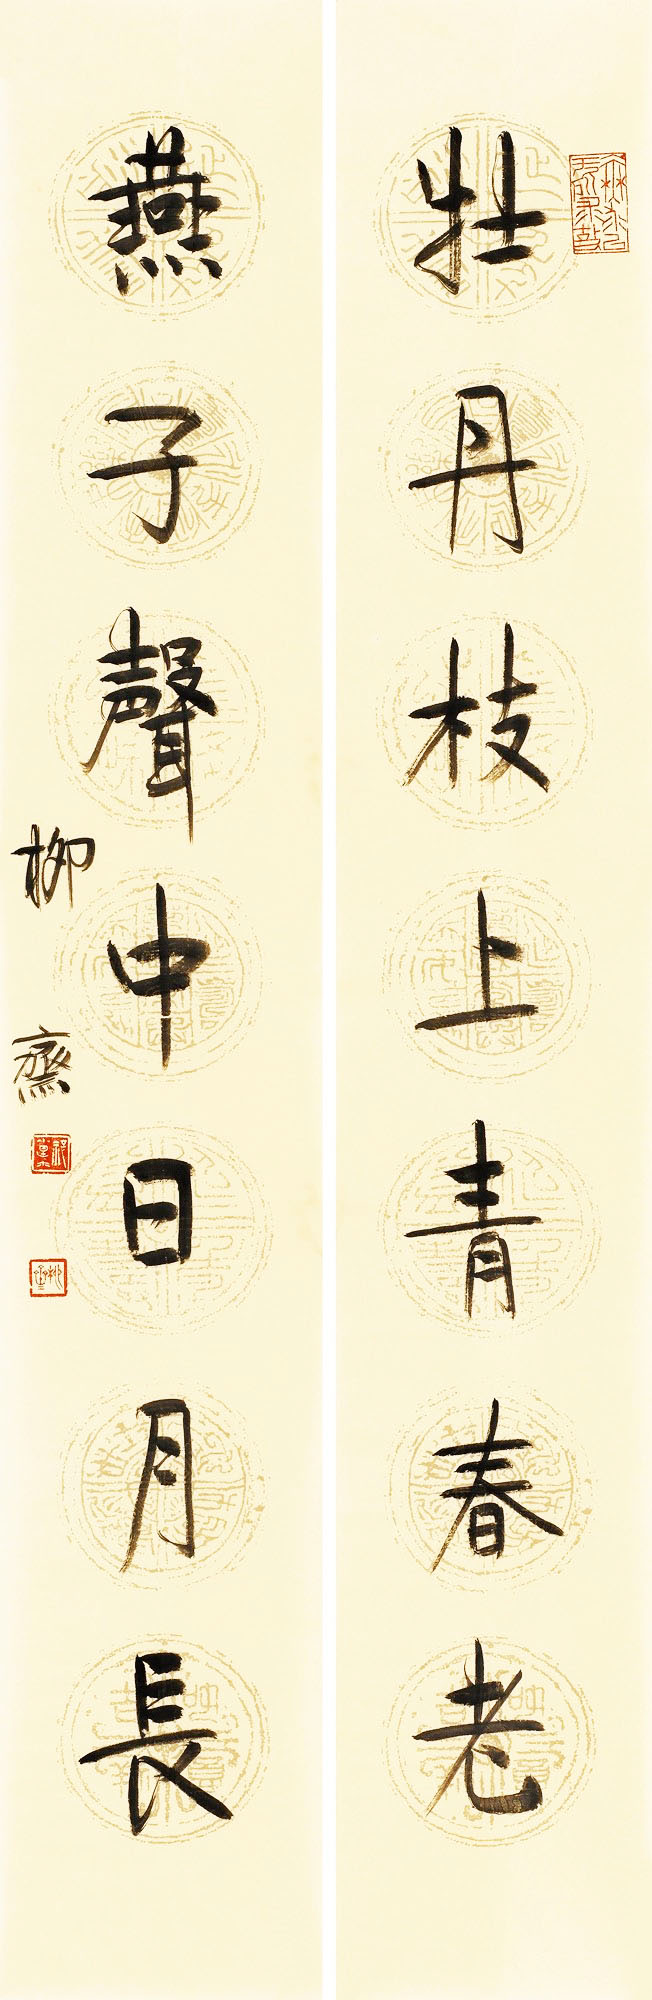 牡丹枝上青春老
燕子聲中日月長
柳齋